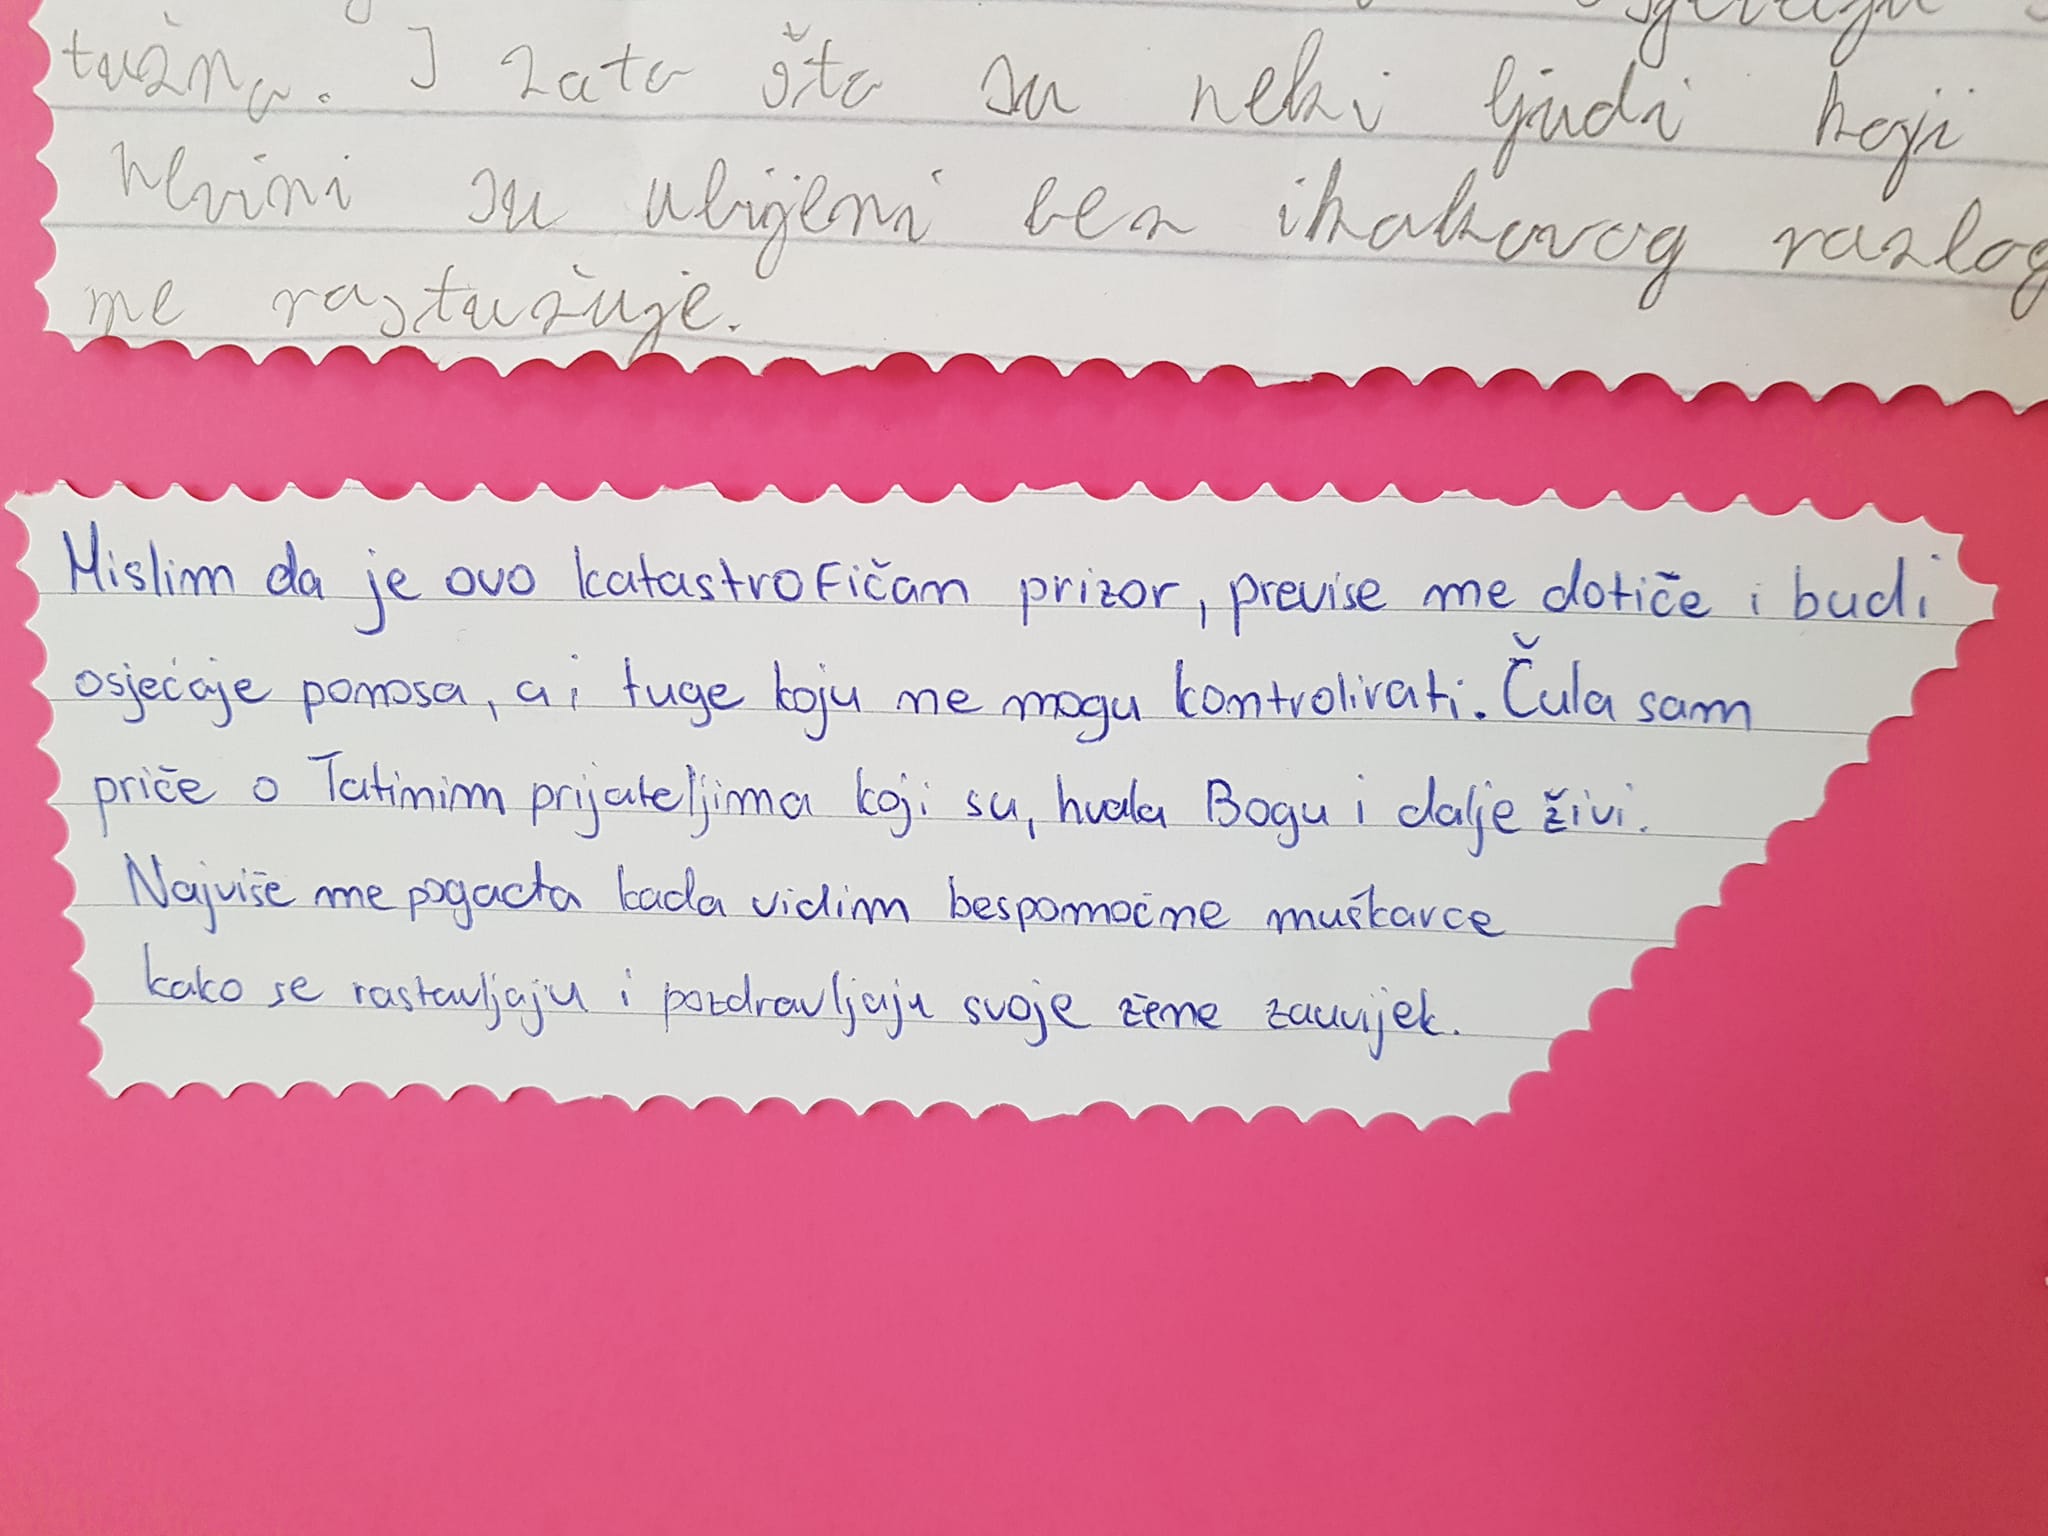 tužna. I zato što su neki ljudi koji
nevini su ubijeni bez ikakovog razlog
me rastužuje.
Mislim da je ovo katastrofičan prizor, previse me dotiče i budi
osjećaje ponosa, a i tuge koju ne mogu kontrolirati. Čula sam
priče o Tatinim prijateljima koji su, hvala Bogu i dalje živi.
Najviše me pogađa kada vidim bespomoćne muškarce
kako se rastavljaju i pozdravljaju svoje žene zauvijek.